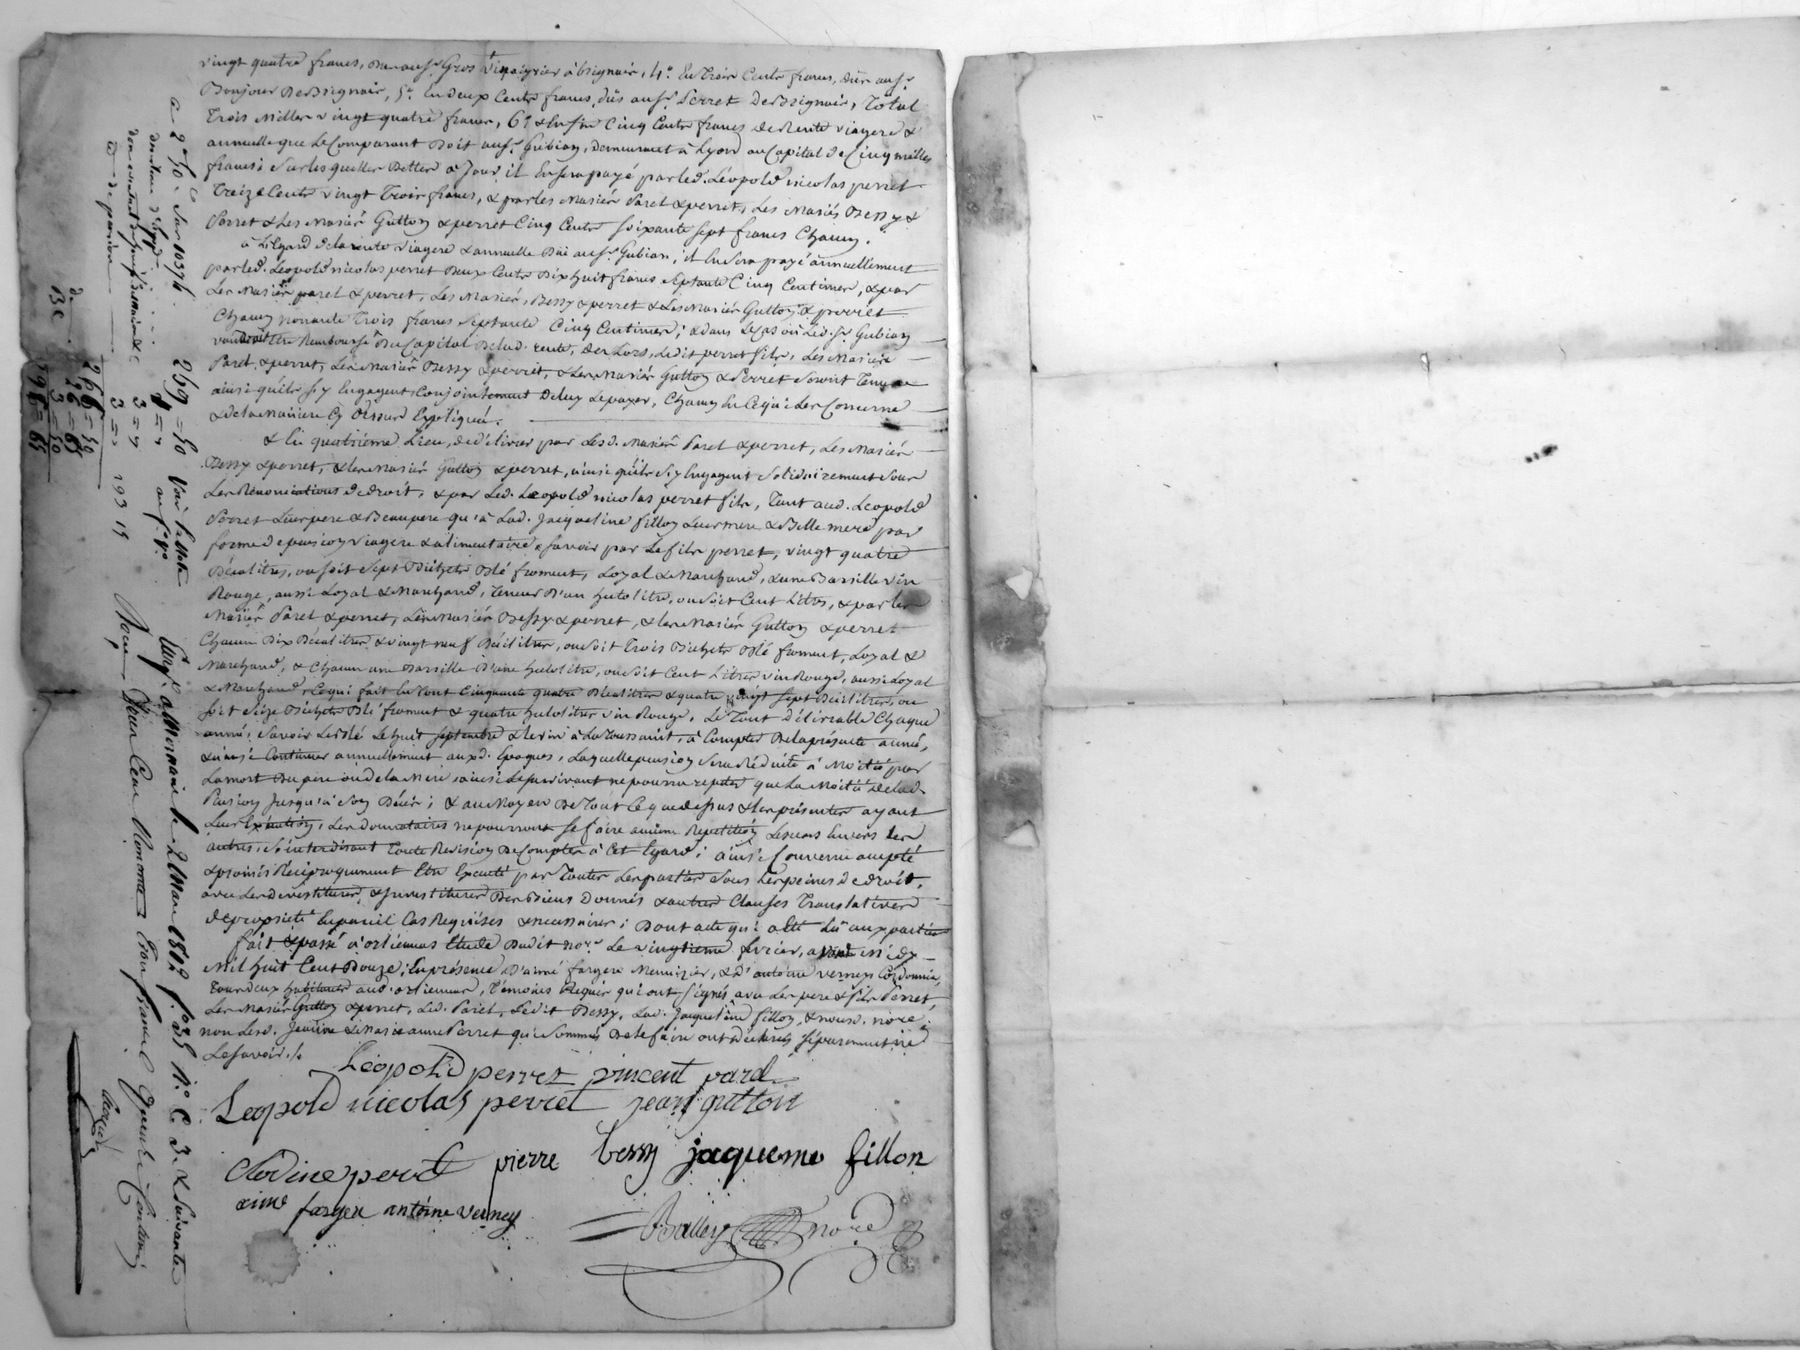 vingt quatre francs, due au sr. Gros vinaigrier à brignais, 4°. En Trois Cents francs, dûs au sr.
Bonjour De Brignais, 5°. En deux Cents francs, dûs au sr. Perret De Brignais, Total
Trois Milles vingt quatre francs, 6°. & Enfin Cinq Cents francs de Rente viagere &
annuelle que Le Comparant Doit au sr. Gubian, demeurant à Lyon au Capital de Cinq milles
francs; Sur lesquelles Dettes à Jour, il En sera payé par led. Léopold nicolas perret
Treize Cents vingt Trois francs, & par les Mariés Parel & perret, Les Mariés Bessy &
Perret & Les Mariés Gutton & perret Cinq Cents soixante sept francs Chacun.
à L'Egard de la rente viagere & annuelle Düe au sr. Gubian, il En sera payé annuellement
par led. Léopold nicolas perret Deux Cents Dix huit francs Septante Cinq Centimes, & par
Les Mariés parel & perret, Les Mariés Bessy & perret & Les Mariés Gutton & perret
Chacun nonante Trois francs Septante Cinq Centimes; & dans Le Cas où Led. sr. Gubian
voudroit Etre Remboursé Du Capital De lad. rente, des Lors, Ledit perret fils, Les Mariés
Parel & perret, Les Mariés Bessy & perret, & Les Mariés Gutton & Perret Seront Tenus
ainsi qu'ils s'y Engagent Conjointement De Luy Le payer, Chacun En Ce qui Les Concerne
& de la Maniere Cy Dessus Expliquée.
& En quatrieme Lieu, de délivrer par Lesd. Mariés Parel & perret, Les Mariés
Bessy & perret, & les Mariés Gutton & perret, ainsi qu'ils s'y Engagent Solidairement Sous
Les Renonciations de droit, & par Led. Leopold nicolas perret fils, Tant aud. Leopold
Perret Leur pere & Beau pere qu'à Lad. Jacqueline fillon Leur mere & Belle mere par
forme de pension viagere & alimentaire, savoir par Le fils perret, vingt quatre
Décalitres, ou soit Sept Bichets Blé froment, Loyal & Marchand, & une Barsille vin
Rouge, aussi Loyal & Marchand, Teneur D'un hectolitre, ou Soit Cent Litres, & par les
Mariés Parel & perret, Les Mariés Bessy & perret, & les Mariés Gutton & perret
Chacun Dix Décalitres & vingt neuf Décilitres, ou soit Trois Bichets Blé froment, Loyal &
Marchand, & Chacun une Barsille D'une hectolitre, ou Soit Cent Litres vin Rouge, aussi Loyal
& Marchand, Ce qui fait En Tout Cinquante quatre Décalitres & quatre vingt sept Décilitres, ou
soit Seize Bichets Blé froment & quatre hectolitres vin Rouge, Le Tout Délivrable Chaque
année, Savoir Le Blé Le huit septembre & Le vin à La Toussaint, à Compter De la présente année,
& ainsi Continuer annuellement auxd. Epoques, Laquelle pension Sera Réduite à Moitié par
La mort Du pere ou de la Mere, ainsi Le survivant ne pourra repeter que La Moitié De lad.
Pension Jusqu'à Son Décès; & au Moyen De Tout Ce que dessus & les présentes ayant
Leur Exécution, Les donnataires ne pourront se faire aucune Repetition Les uns Envers Les
autres, S'interdisant Toute Revision De Comptes à Cet Egard; ainsi Convenu accepté
& promis Réciproquement Etre Executé par Toutes Les parties Sous Les peines de droit,
avec Les devestitures & Investitures Des Biens Donnés & autres Clauses Translatives
de proprieté En pareil Cas Requises & necessaires; Dont acte qui a Eté Lû aux parties
fait & passé à orlienas Etude Dudit nore. Le vingtieme fevrier, avant Midy
Mil huit Cent Douze; En présence D'aimé fargere Menuizier, & D'antoine verney Cordonnier,
Tous deux habitants aud. orlienas, Témoins Requis qui ont signés avec Les pere & fils Perret,
Les Mariés Gutton & perret, Led. Parel, Ledit Bessy, Lad. Jacqueline fillon, & nousd. nore.
non Lesd. Jeanne & Marie anne Perret qui Sommés De le faire ont Déclarés séparement ne
Le savoir ./.
Léopold perret vincent parel
Leopold nicolas perret jean gutton
Clodine peret pierre bessy jaqueme fillon
aimé fargere antoine verney
Balley nore
Enrg. à Mornant le 2 Mars 1812 f° 35 R° C. 3. & Suivantes
Reçu